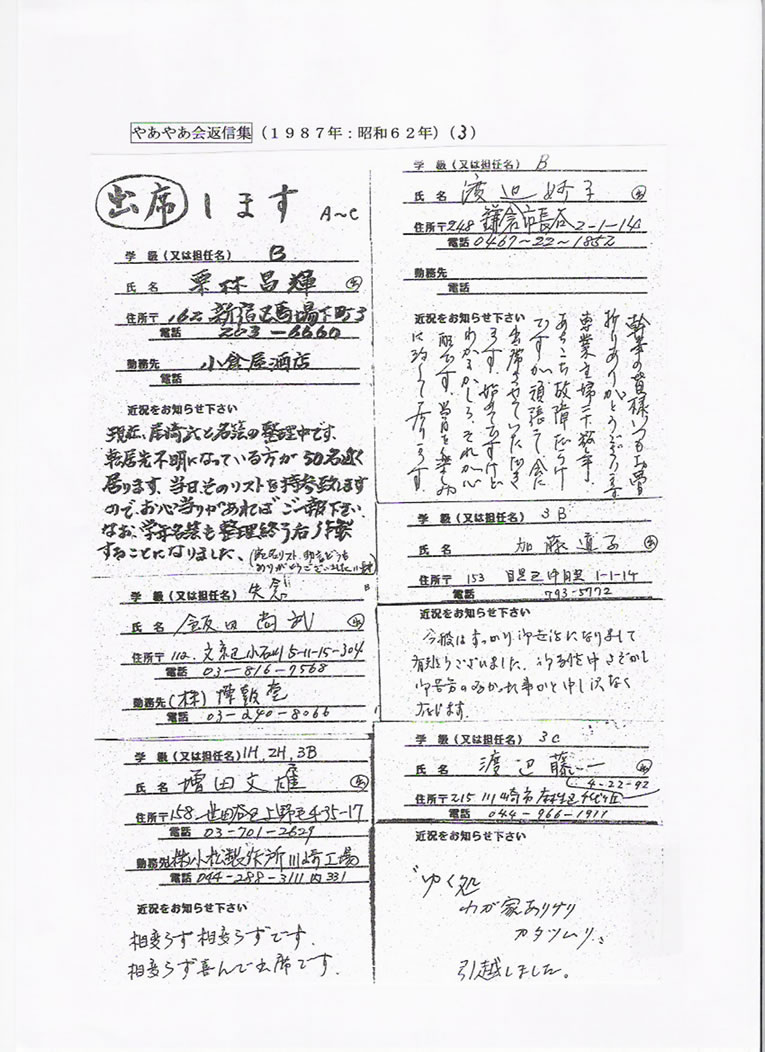 やあやあ会返信集（１９８７年：昭和６２年）（3）
出席します A~C
学 級（又は担任名） B
氏 名 栗林昌輝
住所〒162 新宿区馬場下町3
電話 203-6660
勤務先 小倉屋酒店
電話
近況をお知らせ下さい
現在、尾崎氏と名簿の整理中です。
転居先不明になっている方が50名近く
居ります。当日そのリストを持参致します
ので、お心当りがあればご一報下さい。
なお、学年名簿も整理終り后
することになりました。
学 級（又は担任名） 矢倉 B
氏 名 飯田尚武
住所〒112. 文京区小石川5-11-15-304
電話 03-816-7568
勤務先（株）
電話 03-240-8066
学 級（又は担任名）1H, 2H, 3B
氏 名 増田文雄
住所〒158. 世田谷区上野毛4-35-17
電話 03-701-2629
勤務先 ㈱小松製作所川崎工場
電話 044-288-3111 内331
近況をお知らせ下さい
相変らず相変らずです。
相変らず喜んで出席です。
学 級（又は担任名） B
氏 名 渡辺妙子
住所〒248 鎌倉市長谷2-1-14
電話 0467~22~1852
勤務先
電話
近況をお知らせ下さい
幹事の皆様いつもお骨
折りありがとうございます
専業主婦二十数年、
あちこち故障だらけ
ですが、頑張って会に
出席させていただき
ます。始めてですけど
わかるかしら、それが心
配です。当日を楽しみ
に致して居ります。
学 級（又は担任名） 3B
氏 名 加藤道子
住所〒 153 目黒区中目黒1-1-14
電話 793-5772
近況をお知らせ下さい
今般はすっかり御世話になりまして
有難うございました。
学 級（又は担任名） 3C
氏 名 渡辺藤一
4-22-92
住所〒215 川崎市麻生区千代ヶ丘
電話 044-966-1911
近況をお知らせ下さい
"ゆく処
わが家ありけり
カタツムリ"
引越しました。